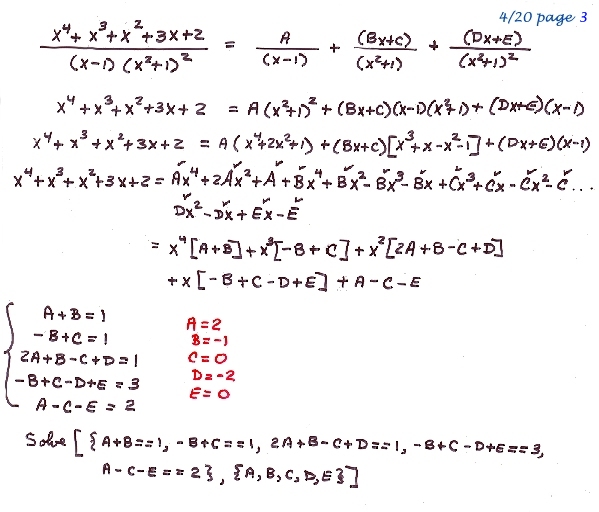 4/20 page 3
x⁴+x³+x²+3x+2 / (x-1)(x²+1)² = A/(x-1) + (Bx+C)/(x²+1) + (Dx+E)/(x²+1)²
x⁴+x³+x²+3x+2 = A(x²+1)²+(Bx+C)(x-1)(x²+1)+(Dx+E)(x-1)
x⁴+x³+x²+3x+2 = A(x⁴+2x²+1)+(Bx+C)[x³+x-x²-1]+(Dx+E)(x-1)
x⁴+x³+x²+3x+2 = Ax⁴+2Ax²+A+Bx⁴+Bx²-Bx³-Bx+Cx³+Cx-Cx²-C...
Dx²-Dx+Ex-E
= x⁴[A+B]+x³[-B+C]+x²[2A+B-C+D]
+x[-B+C-D+E]+A-C-E
A+B=1
-B+C=1
2A+B-C+D=1
-B+C-D+E=3
A-C-E=2
A=2
B=-1
C=0
D=-2
E=0
Solve[{A+B==1, -B+C==1, 2A+B-C+D==1, -B+C-D+E==3,
A-C-E==2}, {A,B,C,D,E}]